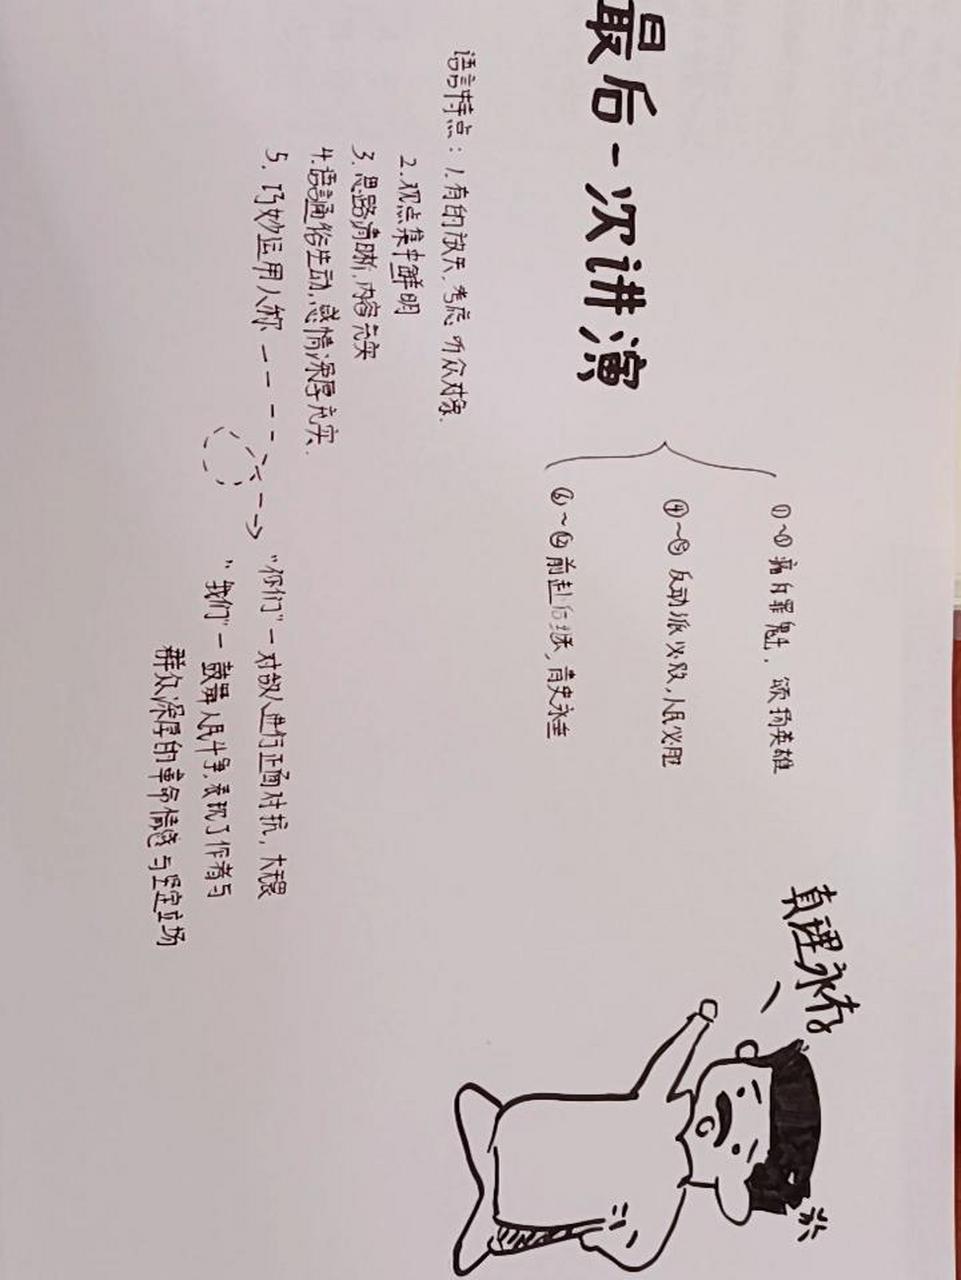 最后一次讲演
①~③ 痛斥罪魁，颂扬英雄
④~⑤ 反动派必败，人民必胜
⑥~⑫ 前赴后继，青史永垂
语言特点：1.有的放矢，考虑听众对象.
2.观点集中鲜明
3.思路清晰，内容充实
4.语言通俗生动，感情深厚充实.
5.巧妙运用人称
"你们"－对敌人进行正面对抗，大无畏
"我们"－鼓舞人民斗争，表现了作者与
群众深厚的革命情感与坚定立场
真理永存